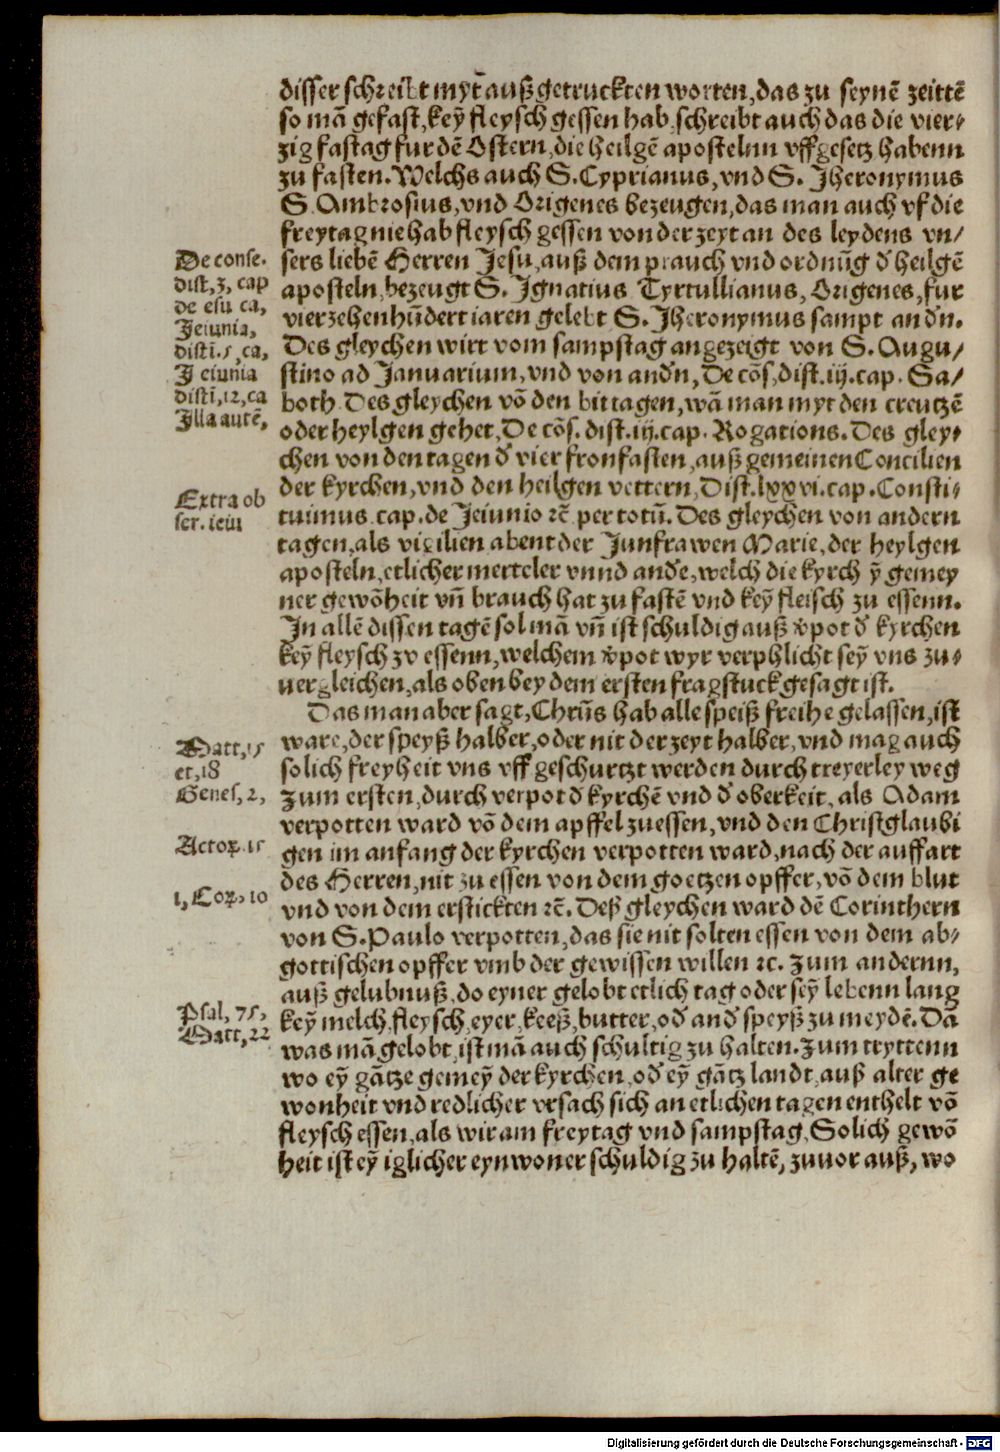 disser schreibt myt̄ auß getruckten worten, das zu seynē zeittē
so mā gefast, keỹ fleysch gessen hab, schreibt auch das die vier-
zig fastag fur dē Ostern, die heilgē apostelnn vffgesetz habenn
zu fasten. Welchs auch S. Cyprianus, vnd S. Jheronymus
S. Ambrosius, vnd Origenes bezeugen, das man auch vf die
freytag nie hab fleysch gessen von der zeyt an des leydens vn/
sers liebē Herren Jesu, auß dem prauch vnd ordnūg đ heilgē
aposteln, bezeugt S. Ignatius Tyrtullianus, Origenes, fur
vierzehenhūdert iaren gelebt S. Jheronymus sampt andn̄.
Des gleychen wirt vom sampstag angezeigt von S. Augu/
stino ad Januarium, vnd von andn̄, De cōs, dist. iij. cap. Sa/
both. Des gleychen vō den bittagen, wā man myt den creutzē
oder heylgen gehet, De cōs. dist. iij. cap. Rogations. Des gley-
chen von den tagen đ vier fronfasten, auß gemeinen Concilien
der kyrchen, vnd den heilgen vettern, Dist. lxxvi. cap. Consti-
tuimus. cap. de Jeiunio ꝛc̄ per totū. Des gleychen von andern
tagen, als vigilien abent der Junfrawen Marie, der heylgen
aposteln, etlicher merteler vnnd anđe, welch die kyrch ỹ gemey
ner gewōheit vn̄ brauch hat zu fastē vnd keỹ fleisch zu essenn.
In allē dissen tagē sol mā vn̄ ist schuldig auß v̄pot đ kyrchen
keỹ fleysch zv essenn, welchem v̄pot wyr verphlicht seỹ vns zu-
uergleichen, als oben bey dem ersten fragstuck gesagt ist.
Das man aber sagt, Chrūs hab alle speiß freihe gelassen, ist
ware, der speyß halber, oder nit der zeyt halber, vnd mag auch
solich freyheit vns vff geschurtzt werden durch treyerley weg
zum ersten, durch verpot đ kyrchē vnd đ oberkeit, als Adam
verpotten ward vō dem apffel zuessen, vnd den Christglaubi
gen im anfang der kyrchen verpotten ward, nach der auffart
des Herren, nit zu essen von dem goetzen opffer, vō dem blut
vnd von dem erstickten ꝛc̄. Deß gleychen ward dē Corinthern
von S. Paulo verpotten, das sie nit solten essen von dem ab-
gottischen opffer vmb der gewissen willen ꝛc. Zum andernn,
auß gelubnuß, do eyner gelobt etlich tag oder seỹ lebenn lang
keỹ melch, fleysch, eyer, keeß, butter, ođ anđ speyß zu meydē. Dā
was mā gelobt, ist mā auch schultig zu halten. Zum tryttenn
wo eỹ gātze gemeỹ der kyrchen, ođ eỹ gātz landt, auß alter ge
wonheit vnd redlicher vrsach sich an etlichen tagen enthelt vō
fleysch essen, als wir am freytag vnd sampstag, Solich gewō
heit ist eỹ iglicher eynwoner schuldig zu haltē, zuuor auß, wo
De conse.
dist, 3, cap
de esu ca,
Jeiunia,
disti. 5, ca,
Jeiunia
disti, 12, ca
Illa autē,
Extra ob
ser. ieiu
Matt, 15
et, 18
Genes, 2,
Actoꝝ. 15
1, Coꝝ, 10
Psal, 75,
Matt, 22
Digitalisierung gefördert durch die Deutsche Forschungsgemeinschaft - DFG